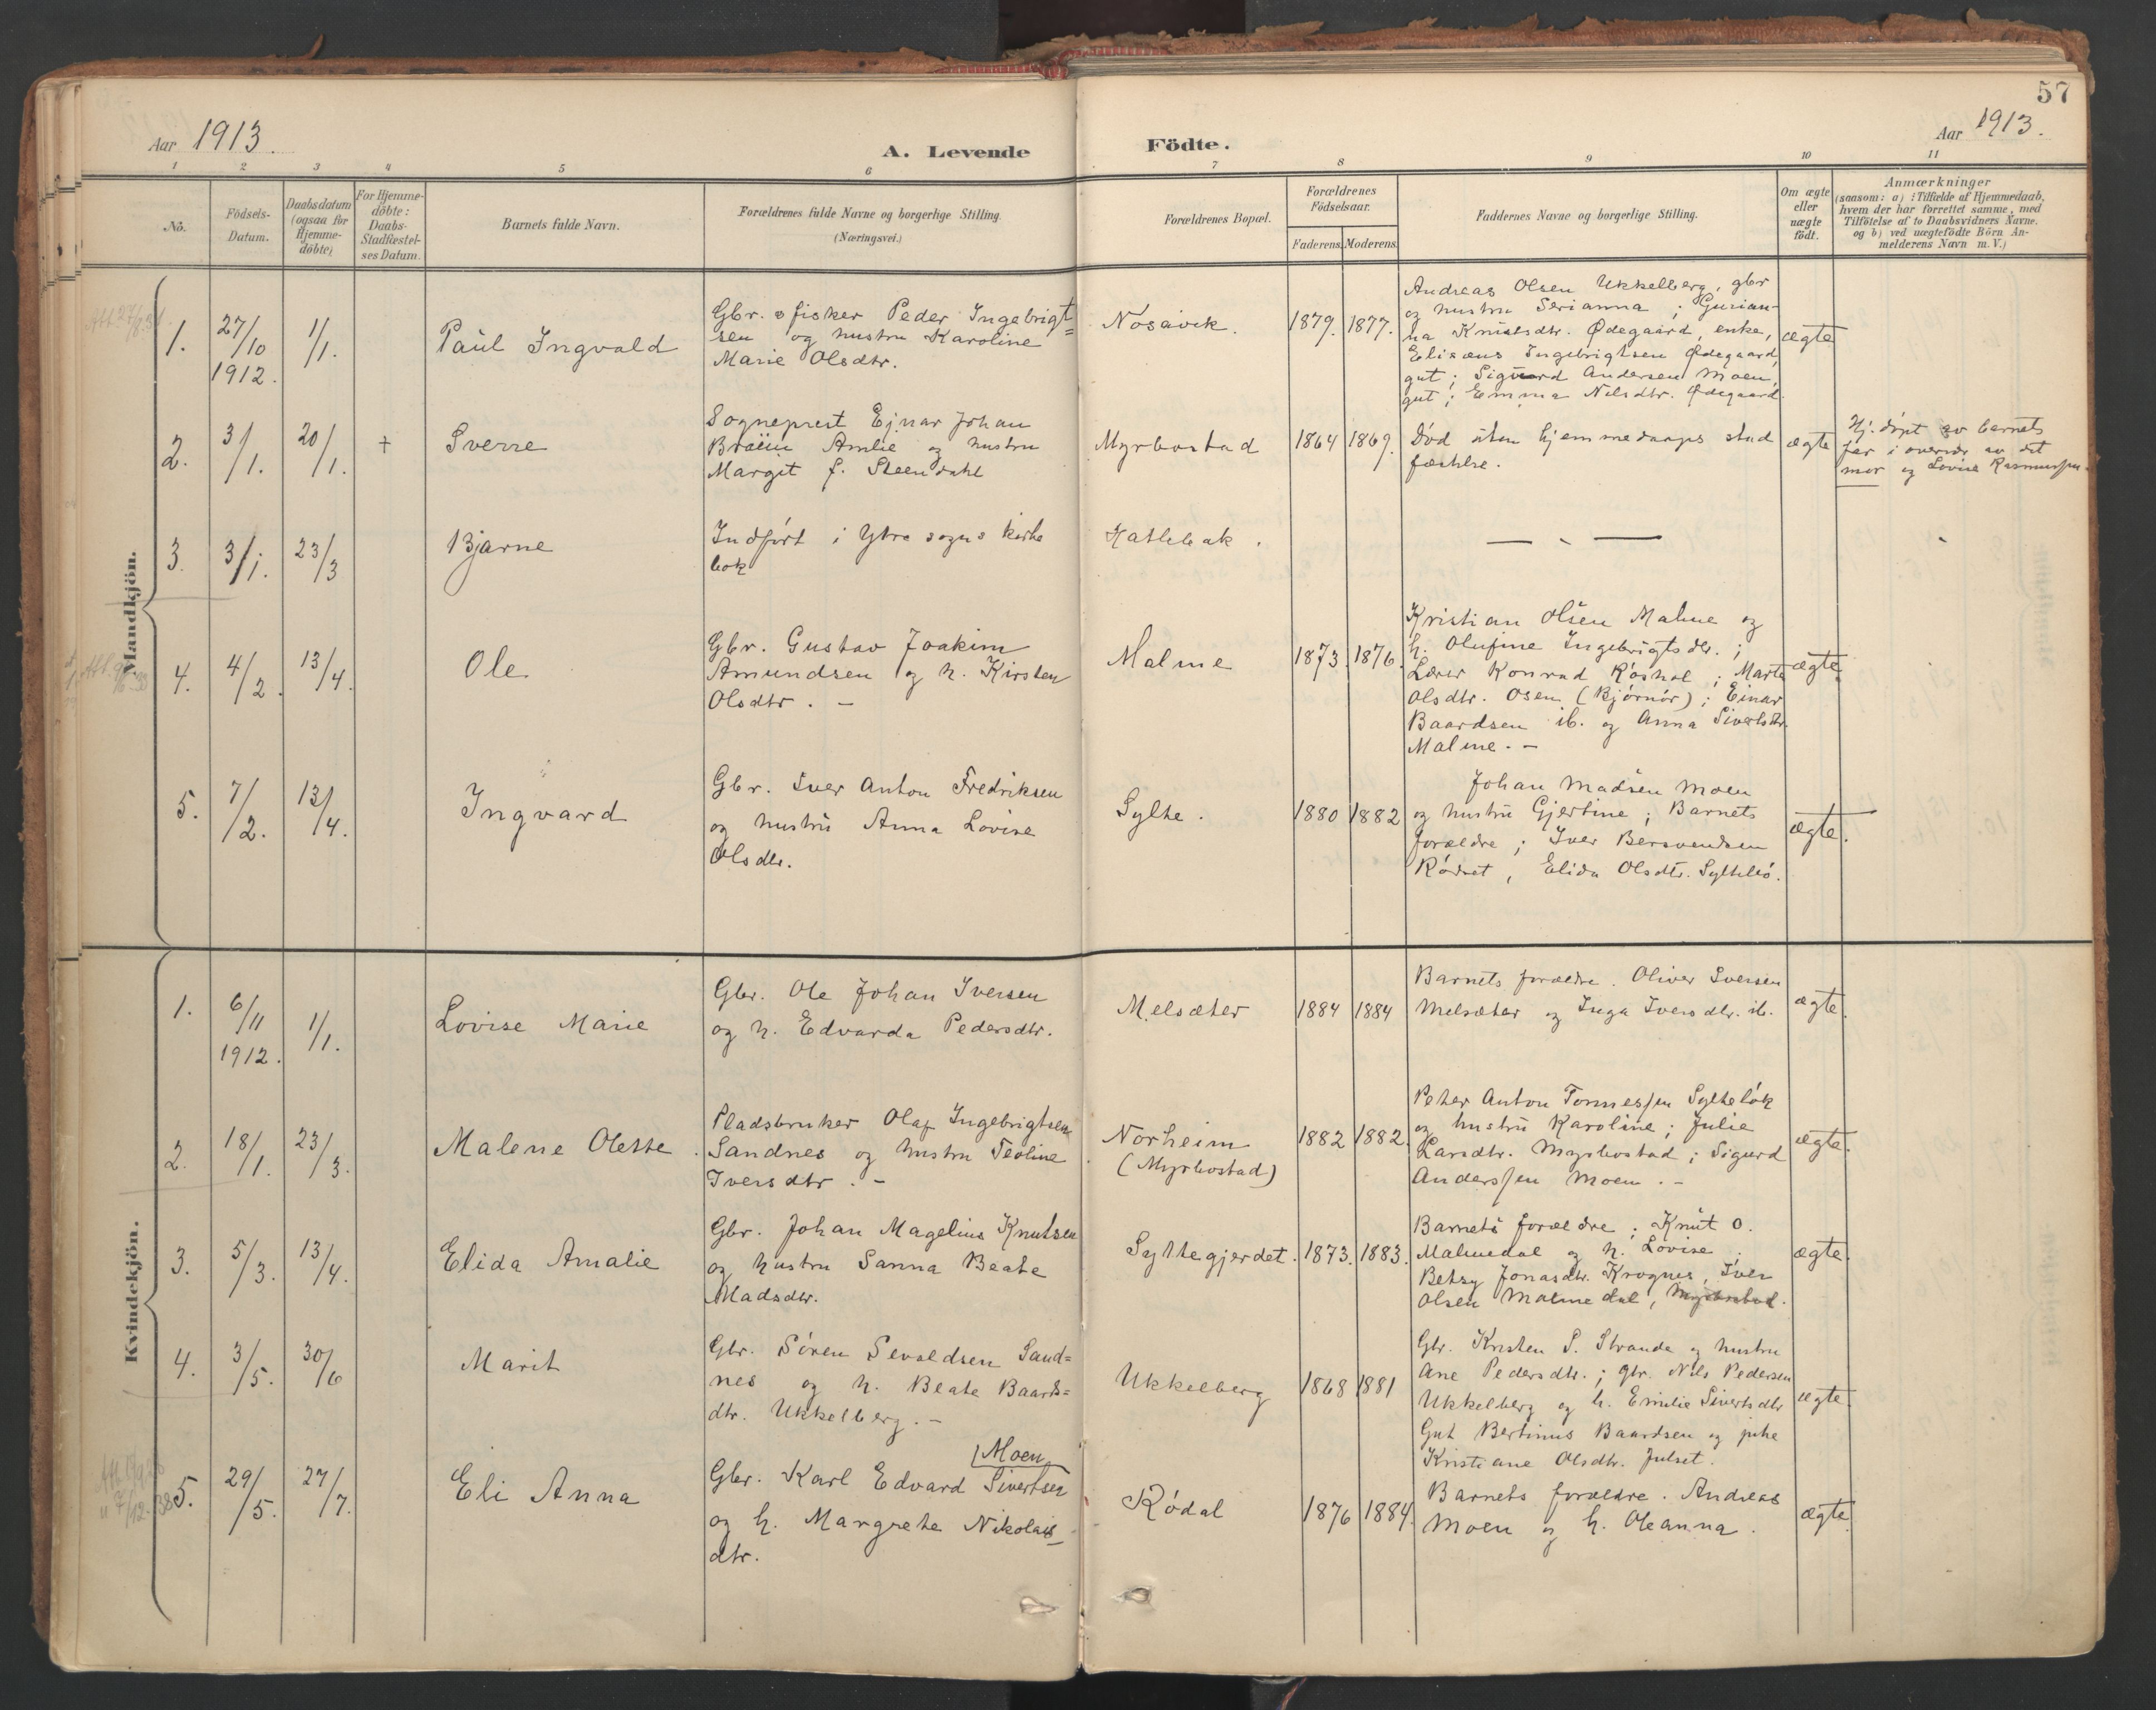 57
Aar 1913.
A. Levende Födte.
Aar 1913.
1 2 3 4 5 6 7 8 9 10 11
No.
Födsels-
Datum.
Daabsdatum
(ogsaa for
Hjemme-
döbte)
For Hjemme-
döbte:
Daabs-
Stadfæstel-
ses Datum.
Barnets fulde Navn.
Forældrenes fulde Navne og borgerlige Stilling.
(Næringsvei.)
Forældrenes Bopæl.
Forældrenes
Födselsaar.
Faderens. Moderens.
Faddernes Navne og borgerlige Stilling.
Om ægte
eller
uægte
födt.
Anmærkninger
(saasom: a) i Tilfælde af Hjemmedaab,
hvem der har forrettet samme, med
Tilföielse af to Daabsvidners Navne.
og b) ved uægtefödte Börn An-
melderens Navn m. V.)
Mandkjön.
1.
27/10
1912.
1/1.
Paul Ingvald
Gbr. o fisker Peder Ingebrigt=
sen og hustru Karoline
Marie Olsdtr.
Nosavik.
1879. 1877.
Andreas Olsen Ukkelberg, gbr
og hustru Serianna; Gurian-
na Knutsdtr. Ødegaard, enke,
Eliseus Ingebrigtsen Ødegaard,
gut; Sigvard Andersen Moen,
gut; Emma Nilsdtr. Ødegaard.
ægte
2.
3/1.
20/1.
+
Sverre
Sogneprest Ejnar Johan
Amlie og hustru
Margit f. Steendahl
Myrbostad
1864 1869.
Død uten hjemmedaaps stad
fæstelse.
ægte
Hj. døpt av barnets
far i overvær av det
mor og Lovise Rasmussen.
3.
3/1.
23/3
Bjarne
Indført i Ytre sogns kirke
bok
Hatlebak.
4.
4/2.
13/4.
Ole
Gbr. Gustav Joakim
Amundsen og h. Kirsten
Olsdtr. -
Malme
1873 1876.
Kristian Olsen Malme og
h. Olufine Ingebrigtsdtr.;
Lærer Konrad Røshol; Marta
Olsdtr. Osen (Bjørnør); Einar
Baardsen ib. og Anna Sivertsdtr.
Malme. -
ægte
5.
7/2.
13/4.
Ingvard
Gbr. Iver Anton Fredriksen
og hustru Anna Lovise
Olsdtr.
Sylte.
1880 1882
Johan Madsen Moen
og hustru Gjertine; Barnets
forældre; Iver Bersvendsen
Rødset, Elida Olsdtr. Syltebø.
ægte.
Kvindekjön.
1.
6/11
1912.
1/1.
Lovise Marie
Gbr. Ole Johan Iversen
og h. Edvarda Pedersdtr.
Melsæter
1884 1884
Barnets forældre. Oliver Iversen
Melsæter og Inga Iversdtr. ib.
ægte.
2.
18/1.
23/3.
Malene Olette.
Pladsbruker Olaf Ingebrigtsen
Sandnes og hustru Teoline
Iversdtr. -
Norheim
(Myrbostad)
1882 1882.
Peter Anton Tønnessen Sylteløk
og hustru Karoline; Julie
Larsdtr. Myrbostad; Sigurd
Anderssen Moen. -
ægte.
3.
5/3.
13/4.
Elida Amalie
Gbr. Johan Magelius Knutsen
og hustru Sanna Beate
Madsdtr.
Syltegjerdet.
1873. 1883.
Barnets forældre; Knut O.
Malmedal og h. Lovise;
Betsy Jonasdtr. Krognes, Iver
Olsen Malmedal, Myrbostad.
ægte.
4.
3/5.
30/6
Marit
Gbr. Søren Sevaldsen Sand=
nes og h. Beate Baards=
dtr. Ukkelberg. -
Ukkelberg
1868 1881
Gbr. Kristen S. Strande og hustru
Ane Pedersdtr.; gbr. Nils Pedersen
Ukkelberg og h. Emilie Sivertsdtr
Gut Bertinus Baardsen og pike
Kristiane Olsdtr. Julset.
ægte.
5.
29/5.
27/7.
Eli Anna
Moen
Gbr. Karl Edvard Sivertsen
og h. Margrete Nikolais
dtr.
Rødal
1876 1884.
Barnets forældre. Andreas
Moen og h. Oleanna.
ægte.